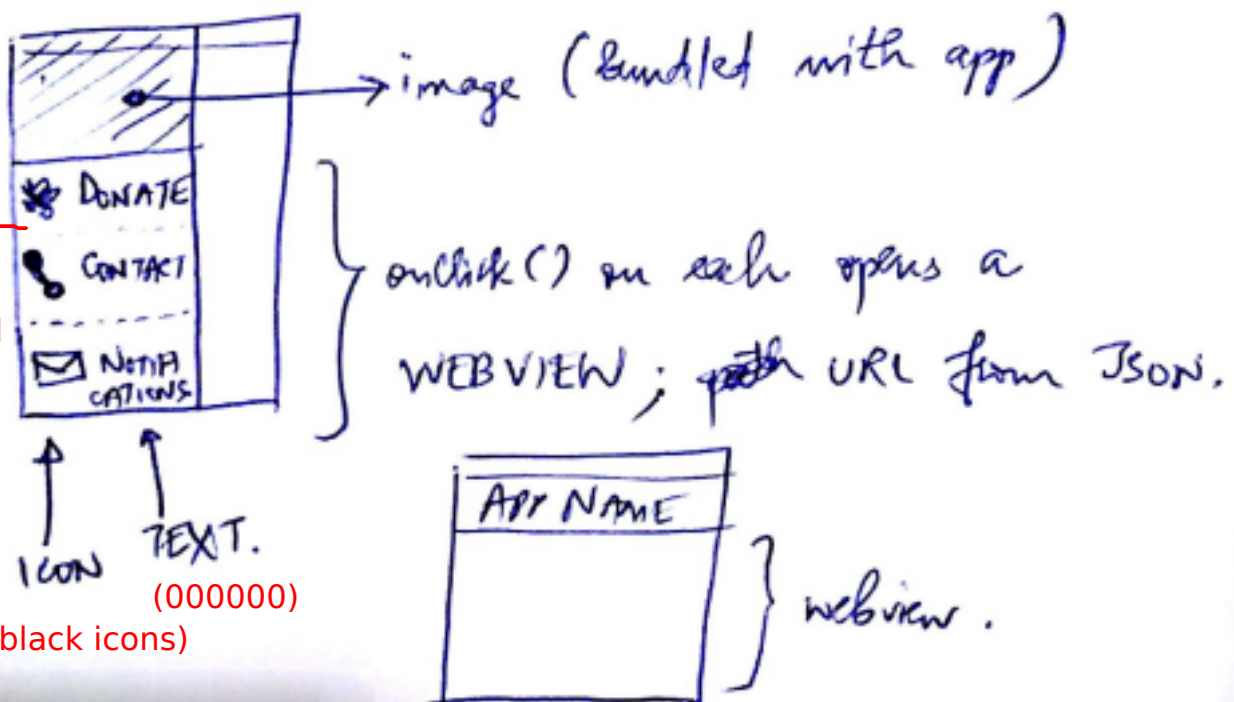 image (bundled with app)
DONATE
CONTACT
NOTIFI
CATIONS
onClick() on each opens a
WEBVIEW; URL from JSON.
APP NAME
ICON
TEXT.
(000000)
black icons)
webview.